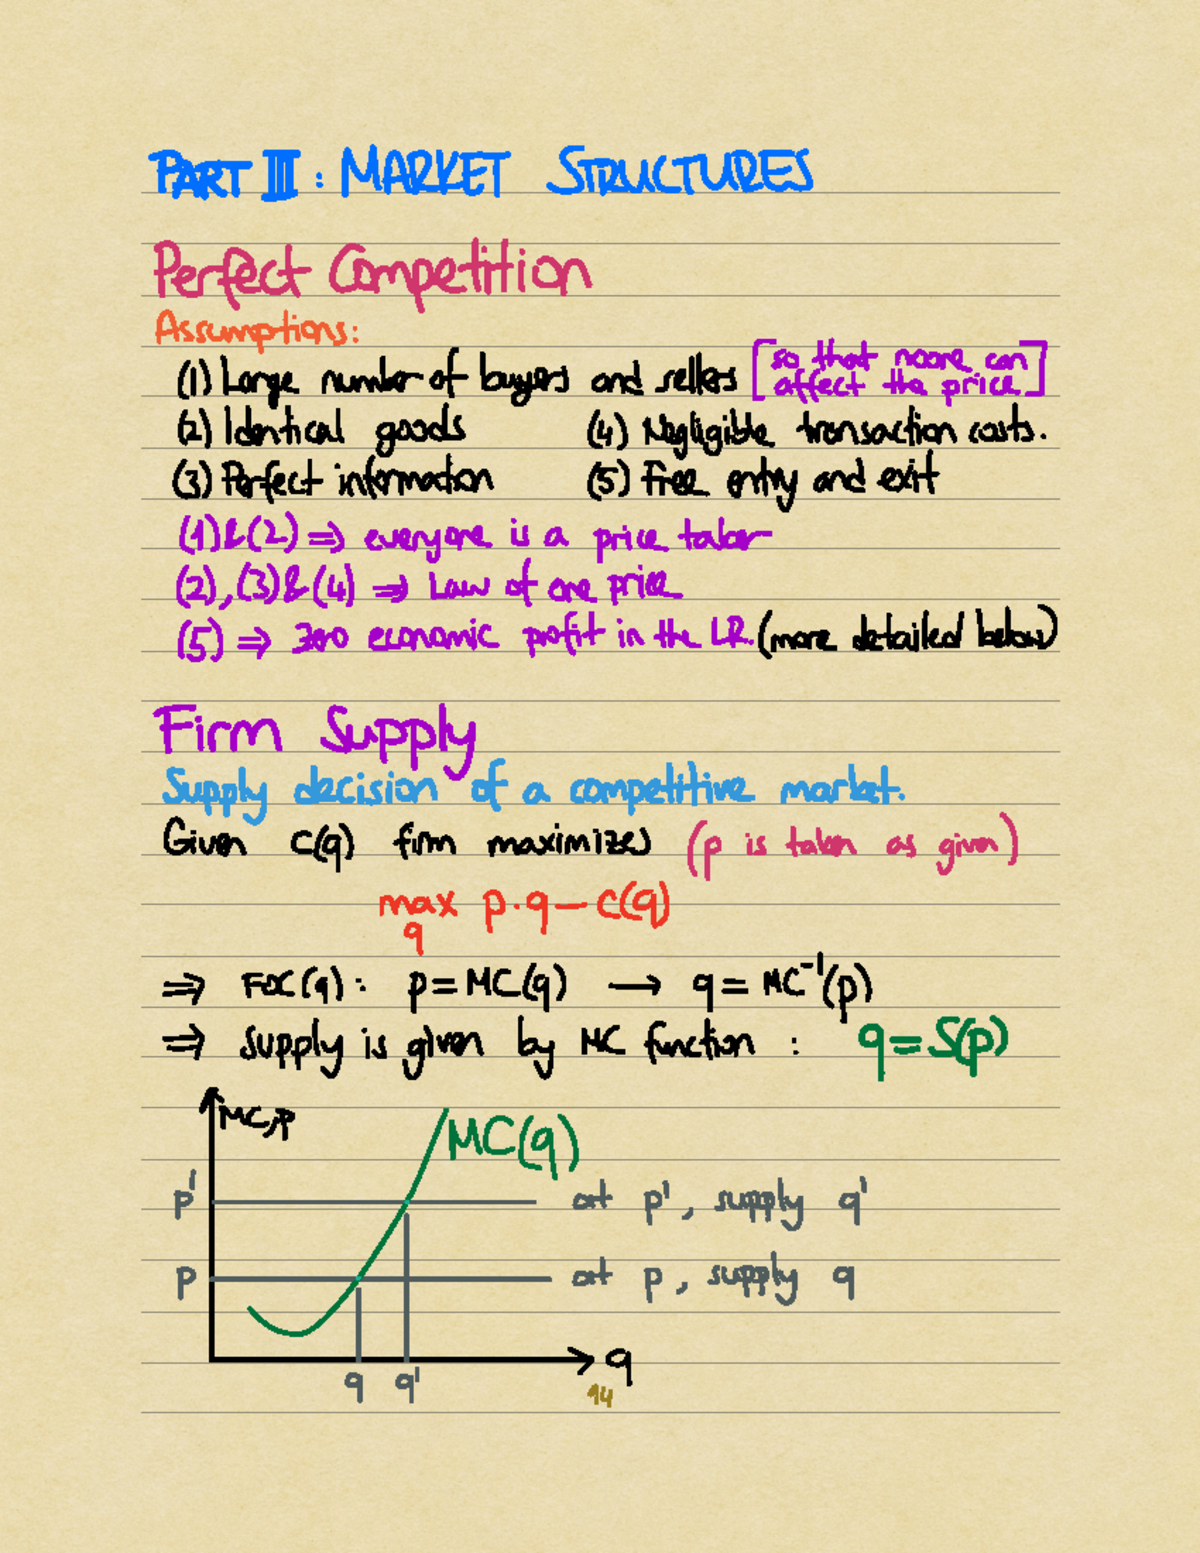 PART III : MARKET STRUCTURES
Perfect Competition
Assumptions:
(1) Large number of buyers and sellers [so that noone can affect the price]
(2) Identical goods (4) Negligible transaction costs.
(3) Perfect information (5) Free entry and exit
(1)&(2) ⇒ everyone is a price taker
(2),(3)&(4) ⇒ Law of one price
(5) ⇒ zero economic profit in the LR. (more detailed below)
Firm Supply
Supply decision of a competitive market.
Given C(q) firm maximizes (p is taken as given)
max p·q − C(q)
q
⇒ FOC(q): p = MC(q) → q = MC⁻¹(p)
⇒ supply is given by MC function : q = S(p)
MC,p
MC(q)
p' at p', supply q'
p at p, supply q
q q' q
94